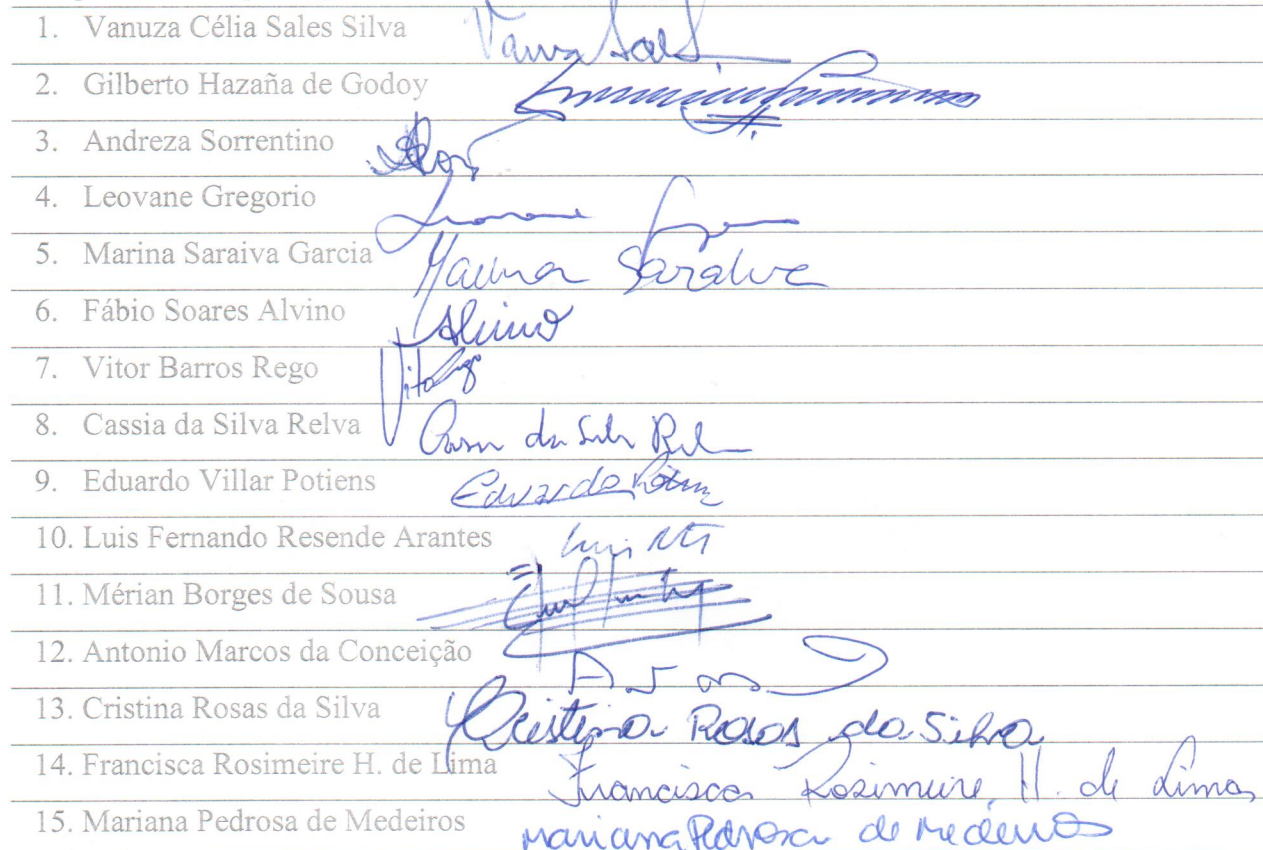 1. Vanuza Célia Sales Silva
2. Gilberto Hazaña de Godoy
3. Andreza Sorrentino
4. Leovane Gregorio
5. Marina Saraiva Garcia Marina Saraiva
6. Fábio Soares Alvino Alvino
7. Vitor Barros Rego
8. Cassia da Silva Relva
9. Eduardo Villar Potiens Eduardo
10. Luis Fernando Resende Arantes
11. Mérian Borges de Sousa
12. Antonio Marcos da Conceição
13. Cristina Rosas da Silva Cristina Rosas da Silva
14. Francisca Rosimeire H. de Lima Francisca Rosimeire H. de Lima
15. Mariana Pedrosa de Medeiros Mariana Pedrosa de Medeiros